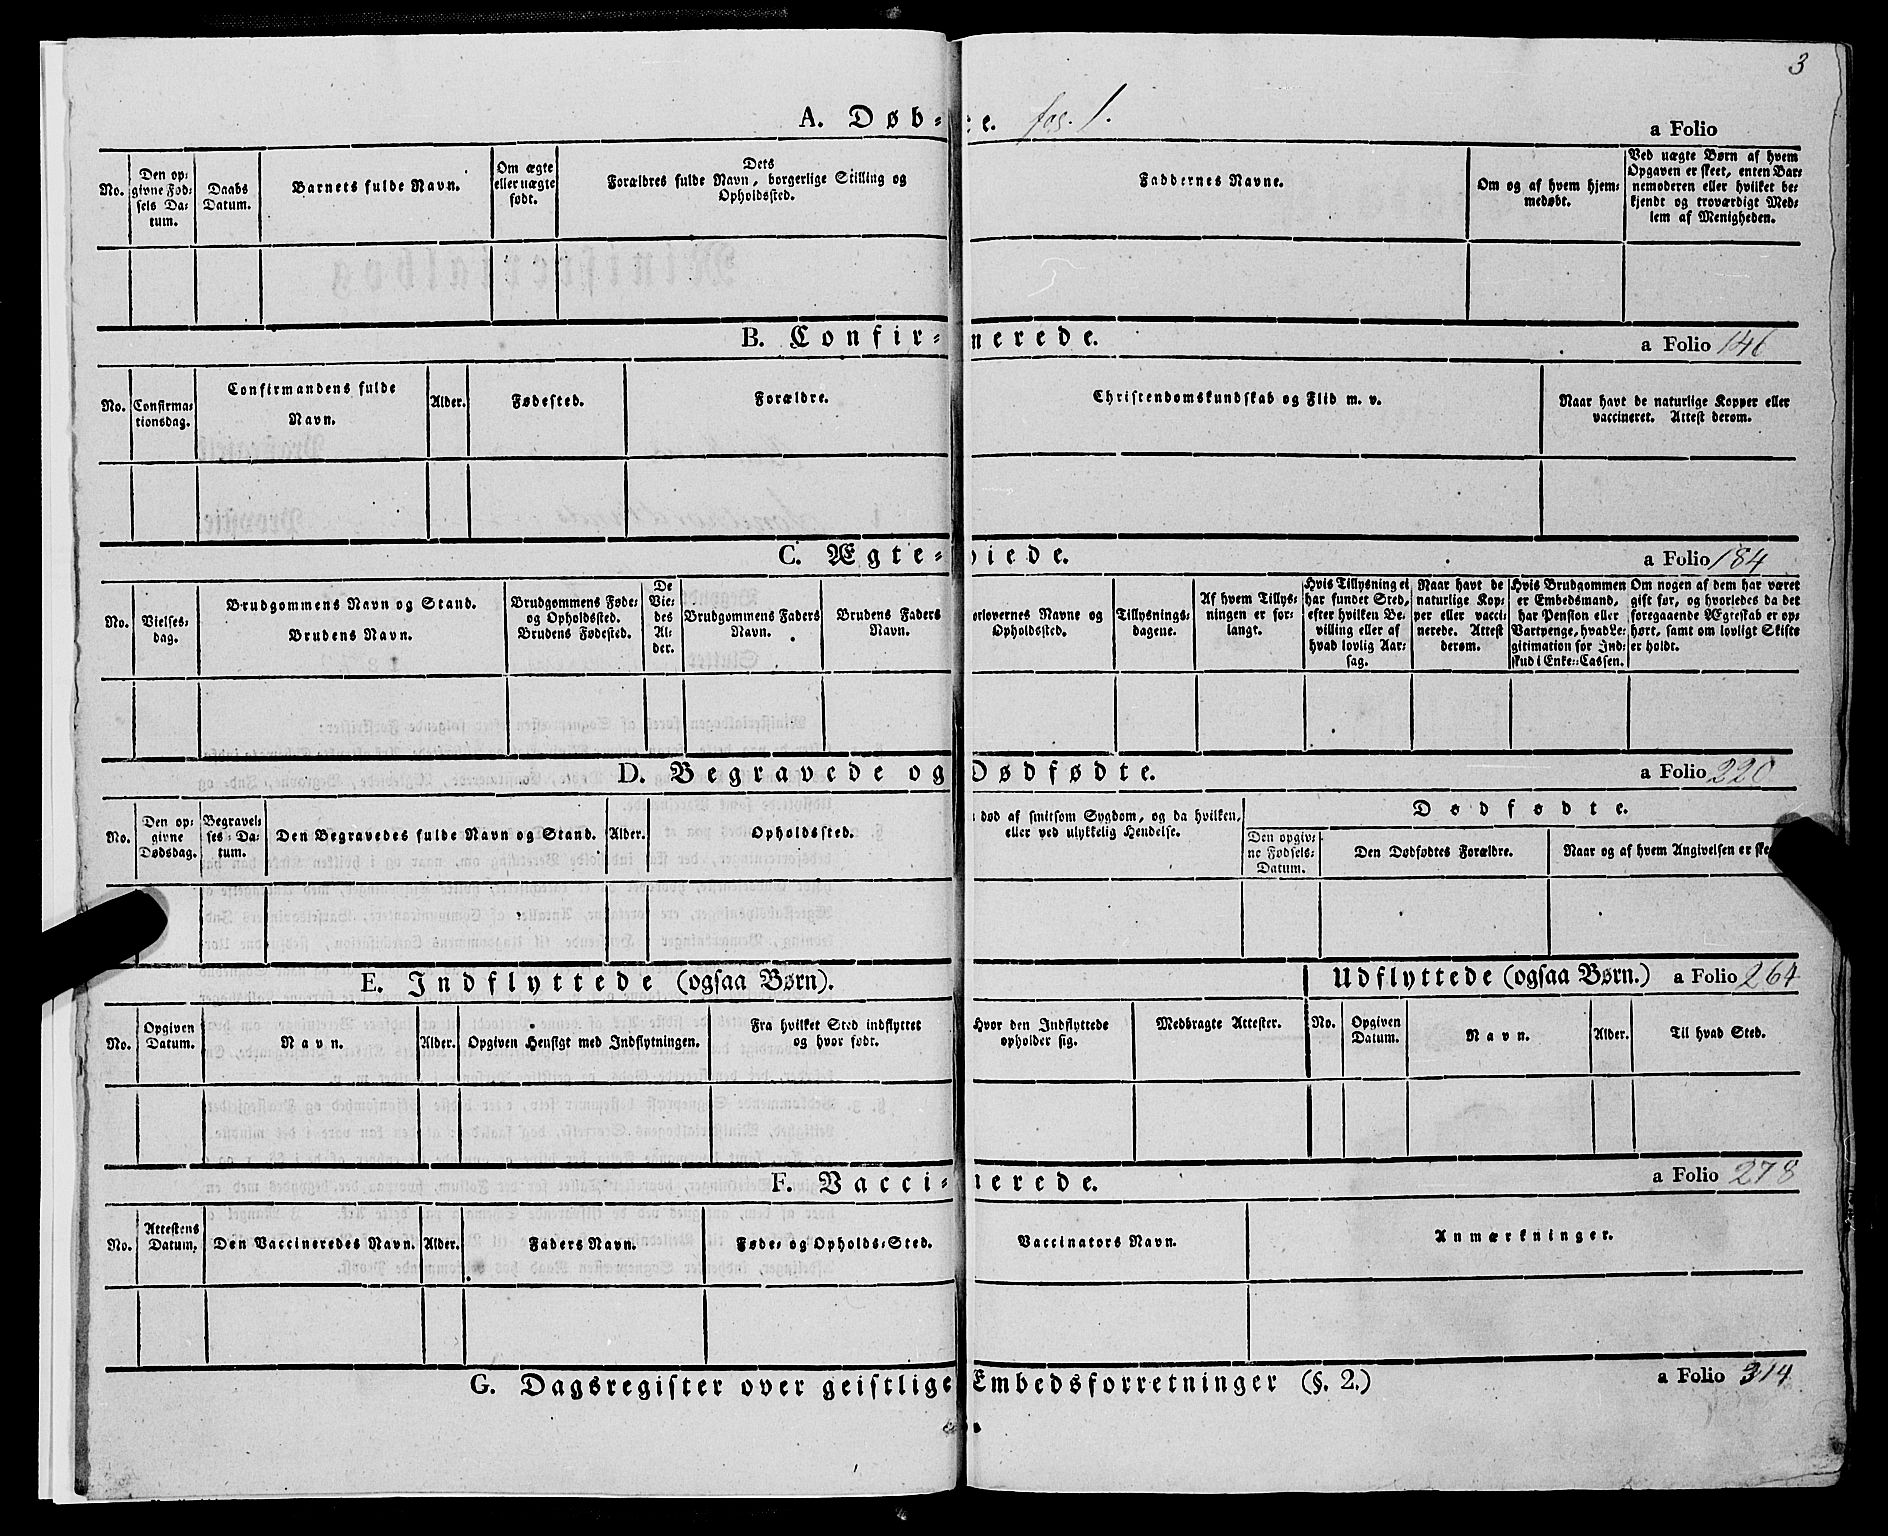 3
A. Døb-
e. fol. 1.
a Folio
No.
Den op-
givne Fød-
sels Da-
tum.
Daabs
Datum.
Barnets fulde Navn.
Om ægte
eller uægte
født.
Dets
Forældres fulde Navn, borgerlige Stilling og
Opholdssted.
Faddernes Navne.
Om og af hvem hjem-
medøbt.
Ved uægte Børn af hvem
Opgaven er skeet, enten Bar-
nemoderen eller hvilket be-
kjendt og troværdigt Med-
lem af Menigheden.
B. Confir-
merede.
a Folio 146
No.
Confirma-
tionsdag.
Confirmandens fulde
Navn.
Alder.
Fødested.
Forældre.
Christendomskundskab og Flid m. v.
Naar havt de naturlige Kopper eller
vaccineret. Attest derom.
C. Ægte-
viede.
a Folio 184
No.
Vielses-
dag.
Brudgommens Navn og Stand.
Brudens Navn.
Brudgommens Føde-
og Opholdssted.
Brudens Fødested.
De
Vie-
des
Al-
der.
Brudgommens Faders
Navn.
Brudens Faders
Navn.
orlovernes Navne og
Opholdssted.
Tillysnings-
dagene.
Af hvem Tillys-
ningen er for-
langt.
Hvis Tillysning ei
har fundet Sted,
efter hvilken Be-
villing eller af
hvad lovlig Aar-
sag.
Naar havt de
naturlige Kop-
per eller vacci-
nerede. Attest
derom.
Hvis Brudgommen
er Embedsmand,
har Pension eller
Vartpenge, hvad Le-
gitimation for Ind-
skud i Enke-Cassen.
Om nogen af dem har været
gift før, og hvorledes da det
foregaaende Ægteskab er op-
hørt, samt om lovligt Skifte
er holdt.
D. Begravede og
Dødfødte.
a Folio 220
No.
Den op-
givne
Dødsdag.
Begravel-
ses-Da-
tum.
Den Begravedes fulde Navn og Stand.
Alder.
Opholdssted.
død af smitsom Sygdom, og da hvilken,
eller ved ulykkelig Hendelse.
Dødfødte.
Den opgiv-
ne Fødsels-
Datum.
Den Dødfødtes Forældre.
Naar og af hvem Angivelsen er ske
E. Indflyttede (ogsaa Børn).
Udflyttede (ogsaa Børn.) a Folio 264
No.
Opgiven
Datum.
Navn.
Alder.
Opgiven Hensigt med Indflytningen.
Fra hvilket Sted indflyttet
og hvor født.
Hvor den Indflyttede
opholder sig.
Medbragte Attester.
No.
Opgiven
Datum.
Navn.
Alder.
Til hvad Sted.
F. Vacci-
nerede.
a Folio 278
No.
Attestens
Datum.
Den Vaccineredes Navn.
Alder.
Faders Navn.
Føde- og Opholds-Sted.
Vaccinators Navn.
Anmærkninger.
G. Dagsregister over geistlige
Embedsforretninger (§. 2.)
a Folio 314